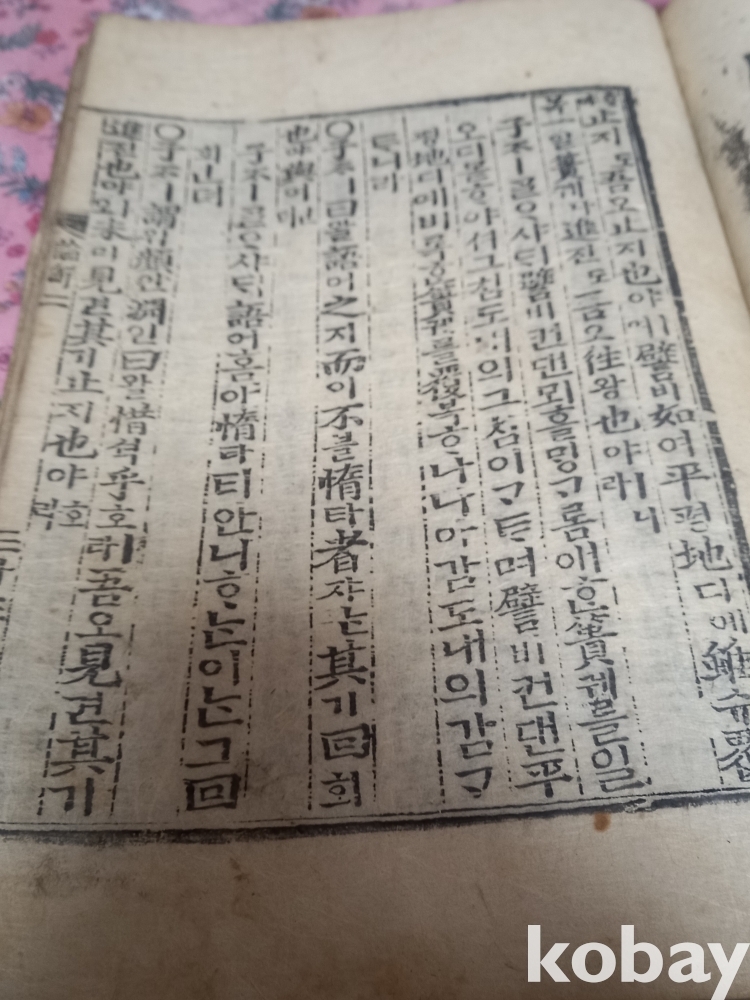 止지도吾오止지也야ㅣ며譬비如여平평地디에雖슈覆
복一일簣궤나進진도吾오往왕也야ㅣ니라
子ᄌᆞㅣᄀᆞᆯᄋᆞ샤ᄃᆡ譬비컨댄뫼흘ᄆᆡᆼᄀᆞ롬애ᄒᆞᆫ簣궤를일
오디몯ᄒᆞ야셔그침도내의그침이ᄀᆞᄐᆞ며譬비컨댄平
평地디예비록ᄒᆞᆫ簣궤를覆복ᄒᆞ나나아감도내의감ᄀᆞ
ᄐᆞ니라
○子ᄌᆞㅣ曰왈語어之지而이不블惰타者쟈ᄂᆞᆫ其기回회
也야與여ㅣᆫ뎌
子ᄌᆞㅣᄀᆞᆯᄋᆞ샤ᄃᆡ語어홈애惰타티아니ᄒᆞᄂᆞᆫ이ᄂᆞᆫ그回
회ㅣᆫ뎌
○子ᄌᆞㅣ謂위顔안淵연曰왈惜셕乎호ㅣ라吾오見견其기
進진也야ㅣ오未미見견其기止지也야호라
kobay